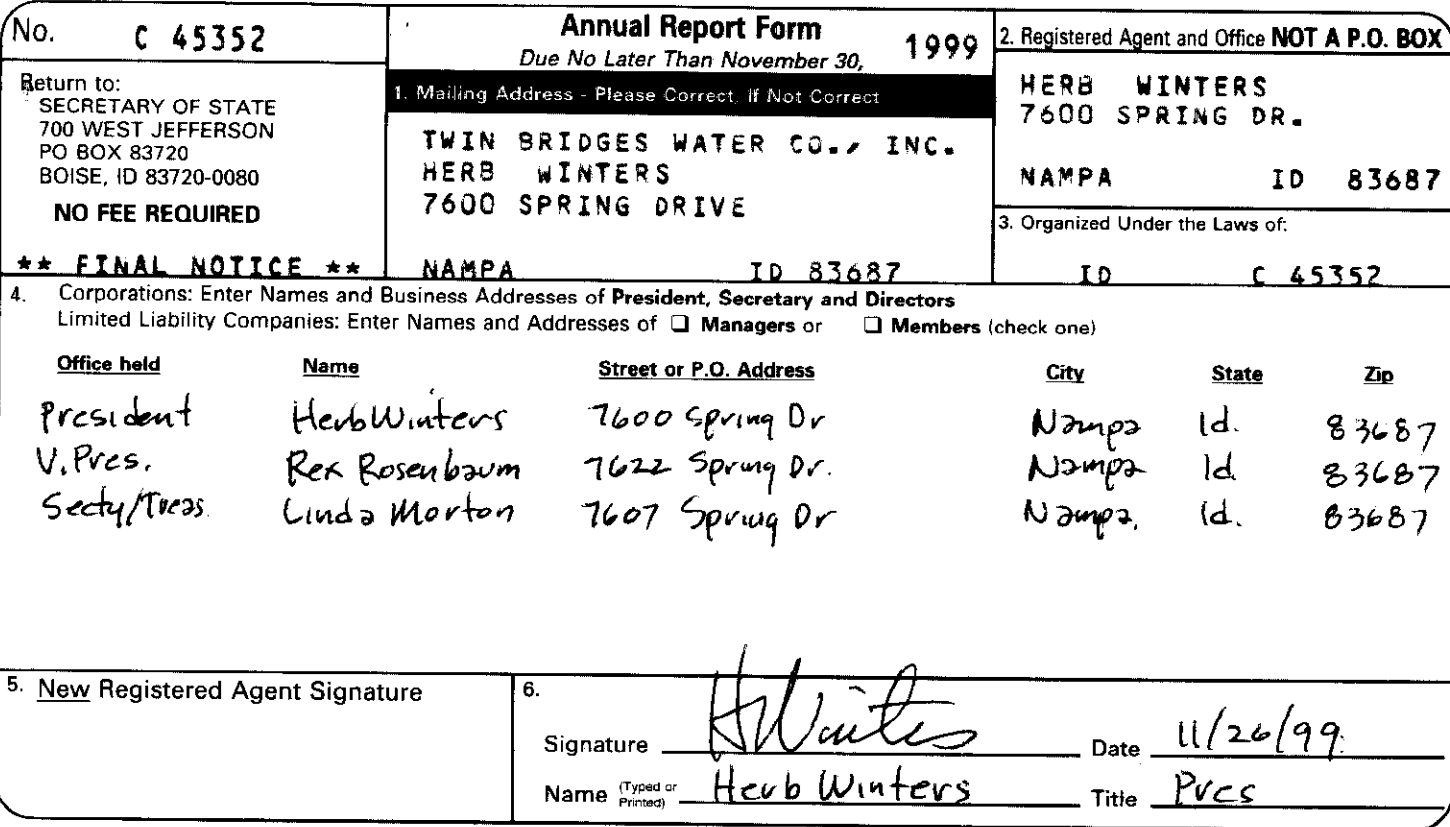 No. C 45352
Return to:
SECRETARY OF STATE
700 WEST JEFFERSON
PO BOX 83720
BOISE, ID 83720-0080
NO FEE REQUIRED
** FINAL NOTICE **
Annual Report Form
Due No Later Than November 30, 1999
1. Mailing Address - Please Correct, If Not Correct
TWIN BRIDGES WATER CO., INC.
HERB WINTERS
7600 SPRING DRIVE
NAMPA ID 83687
2. Registered Agent and Office NOT A P.O. BOX
HERB WINTERS
7600 SPRING DR.
NAMPA ID 83687
3. Organized Under the Laws of:
ID C 45352
4. Corporations: Enter Names and Business Addresses of President, Secretary and Directors
Limited Liability Companies: Enter Names and Addresses of ❑ Managers or ❑ Members (check one)
Office held Name Street or P.O. Address City State Zip
President Herb Winters 7600 Spring Dr Nampa Id. 83687
V. Pres. Rex Rosenbaum 7622 Spring Dr. Nampa Id 83687
Secty/Treas. Linda Morton 7607 Spring Dr Nampa, Id. 83687
5. New Registered Agent Signature
6.
Signature HWinters Date 11/26/99
Name (Typed or Printed) Herb Winters Title Pres